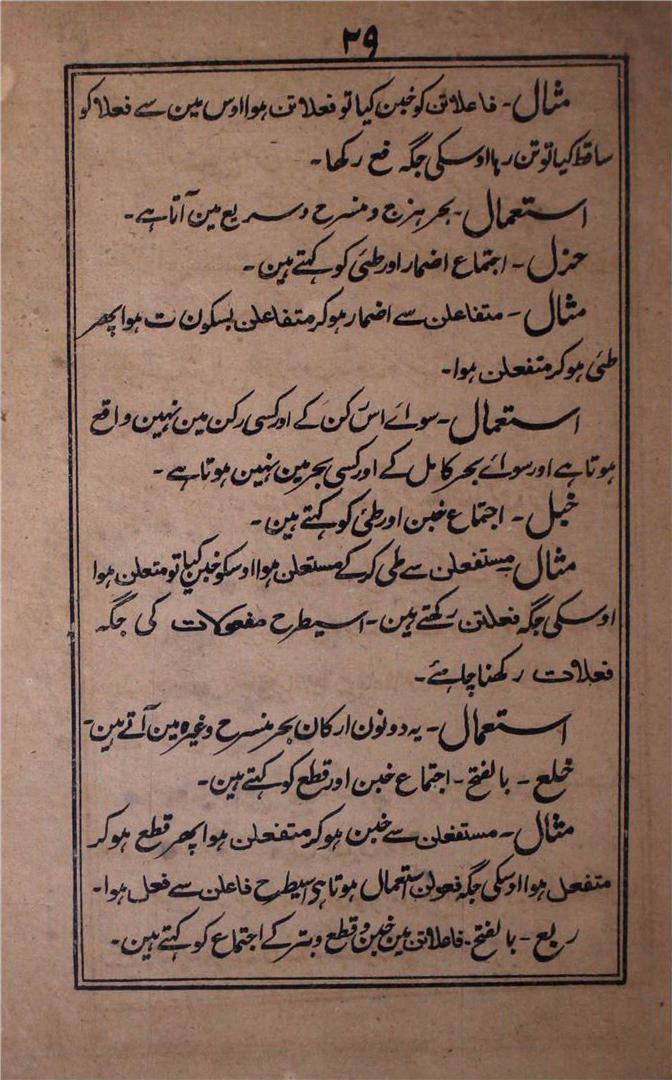 ۲۹
مثال۔ فاعلاتن کو خبن کیا تو فعلاتن ہوا اوس مین سے فعلا کو
ساقط کیا تو تن رہا اوسکی جگہ فع رکھا۔
استعمال۔ بحر ہزج و منسرح و سریع مین آتا ہے۔
خزل۔ اجتماع اضمار اور طئی کو کہتے ہین۔
مثال۔ متفاعلن سے اضمار ہوکر متفاعلن بسکون ت ہوا پھر
طئی ہوکر متفعلن ہوا۔
استعمال۔ سواے اس رکن کے اور کسی رکن مین نہین واقع
ہوتا ہے اور سواے بحر کامل کے اور کسی بحر مین نہین ہوتا ہے۔
خبل۔ اجتماع خبن اور طئی کو کہتے ہین۔
مثال مستفعلن سے طی کرکے مستعلن ہوا اوسکو خبن کیا تو متعلن ہوا
اوسکی جگہ فعلتن رکھتے ہین۔ اسیطرح مفعولات کی جگہ
فعلات رکھنا چاہئے۔
استعمال۔ یہ دونون ارکان بحر منسرح وغیرہ مین آتے ہین۔
خلع۔ بالفتح۔ اجتماع خبن اور قطع کو کہتے ہین۔
مثال۔ مستفعلن سے خبن ہوکر متفعلن ہوا پھر قطع ہوکر
متفعل ہوا اوسکی جگہ فعولن استعمال ہوتا ہی اسیطرح فاعلن سے فعل ہوا۔
ربع۔ بالفتح۔ فاعلاتن مین خبن و قطع و بتر کے اجتماع کو کہتے ہین۔